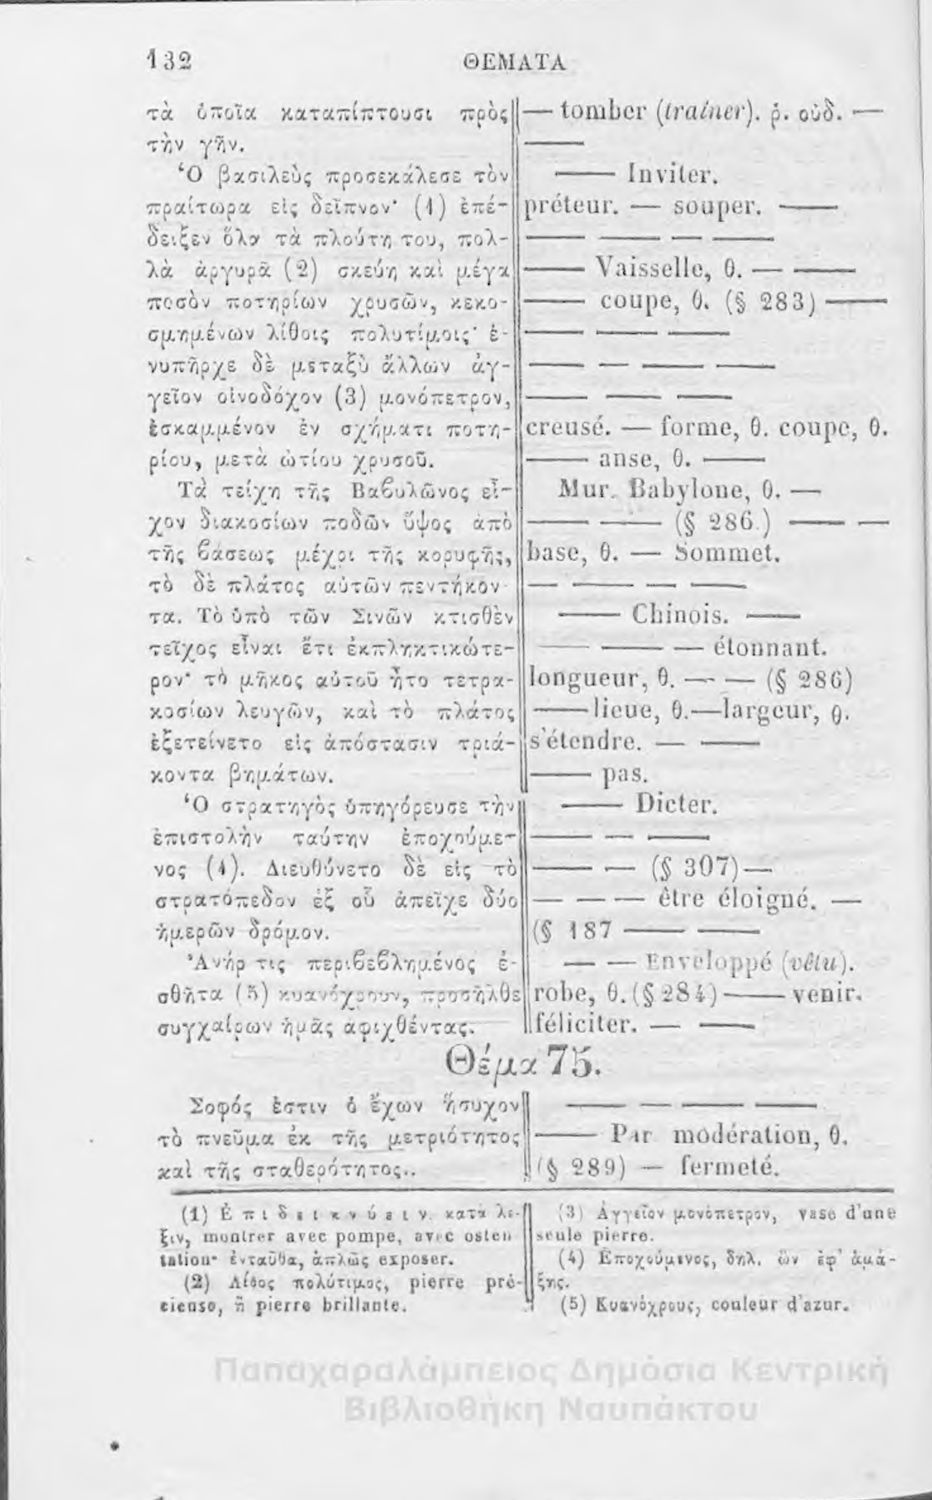 132 ΘΕΜΑΤΑ
τὰ ὁποῖα καταπίπτουσι πρὸς
τὴν γῆν.
Ὁ βασιλεὺς προσεκάλεσε τὸν
πραίτωρα εἰς δεῖπνον· (1) ἐπέ-
δειξεν ὅλα τὰ πλούτη του, πολ-
λὰ ἀργυρᾶ (2) σκεύη καὶ μέγα
ποσὸν ποτηρίων χρυσῶν, κεκο-
σμημένων λίθοις πολυτίμοις· ἐ-
νυπῆρχε δὲ μεταξὺ ἄλλων ἀγ-
γεῖον οἰνοδόχον (3) μονόπετρον,
ἐσκαμμένον ἐν σχήματι ποτη-
ρίου, μετὰ ὠτίου χρυσοῦ.
Τὰ τείχη τῆς Βαβυλῶνος εἶ-
χον διακοσίων ποδῶν ὕψος ἀπὸ
τῆς βάσεως μέχρι τῆς κορυφῆς,
τὸ δὲ πλάτος αὐτῶν πεντήκον-
τα. Τὸ ὑπὸ τῶν Σινῶν κτισθὲν
τεῖχος εἶναι ἔτι ἐκπληκτικώτε-
ρον· τὸ μῆκος αὐτοῦ ἦτο τετρα-
κοσίων λευγῶν, καὶ τὸ πλάτος
ἐξετείνετο εἰς ἀπόστασιν τριά-
κοντα βημάτων.
Ὁ στρατηγὸς ὑπηγόρευσε τὴν
ἐπιστολὴν ταύτην ἐποχούμε-
νος (4). Διευθύνετο δὲ εἰς τὸ
στρατόπεδον ἐξ οὗ ἀπεῖχε δύο
ἡμερῶν δρόμον.
Ἀνήρ τις περιβεβλημένος ἐ-
σθῆτα (5) κυανόχρουν, προσῆλθε
συγχαίρων ἡμᾶς ἀφιχθέντας.
— tomber (trainer). ῥ. οὐδ. —
——
—— Inviter.
préteur. — souper. ——
—— —— — ——
—— Vaisselle, θ. — ——
—— coupe, θ. (§ 283) ——
—— —— ——
—— — —— ——
—— —— ——
creusé. — forme, θ. coupe, θ.
—— anse, θ. ——
Mur. Babylone, θ. —
—— —— (§ 286.) —— —
base, θ. — Sommet.
— —— — ——
—— Chinois. ——
—— —— — étonnant.
longueur, θ. — — (§ 286)
—— lieue, θ. — largeur, θ.
s'étendre. — ——
—— pas.
—— Dicter.
—— — ——
—— — (§ 307) —
— — — être éloigné. —
(§ 187 —— ——
— — Enveloppé (vêtu).
robe, θ. (§ 284) —— venir.
féliciter. — ——
Θέμα 75.
Σοφός ἐστιν ὁ ἔχων ἥσυχον
τὸ πνεῦμα ἐκ τῆς μετριότητος
καὶ τῆς σταθερότητος..
—— —— ——
—— Par modération, θ.
(§ 289) — fermeté.
(1) Ἐπιδεικνύειν κατὰ λέ-
ξιν, montrer avec pompe, avec osten
tation· ἐνταῦθα, ἁπλῶς exposer.
(2) Λίθος πολύτιμος, pierre pré-
cieuse, ἢ pierre brillante.
(3) Ἀγγεῖον μονόπετρον, vase d'une
seule pierre.
(4) Ἐποχούμενος, δηλ. ὢν ἐφ' ἁμά-
ξης.
(5) Κυανόχρους, couleur d'azur.
Παπαχαραλάμπειος Δημόσια Κεντρική
Βιβλιοθήκη Ναυπάκτου